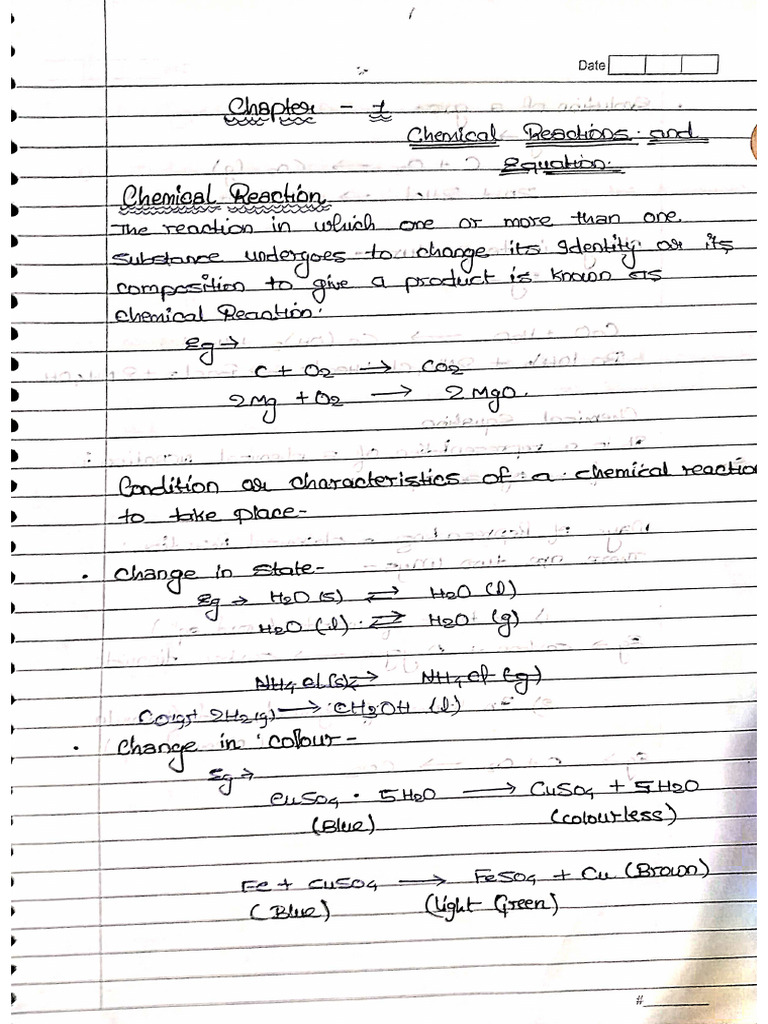 Date
Chapter - 1
Chemical Reactions and
Equation.
Chemical Reaction
The reaction in which one or more than one
substance undergoes to change its Identity or its
composition to give a product is known as
chemical Reaction.
Eg →
C + O2 → CO2
2Mg + O2 → 2MgO.
Condition or characteristics of a chemical reaction
to take place-
• Change in state-
Eg → H2O (s) ⇌ H2O (l)
H2O (l) ⇌ H2O (g)
NH4Cl (s) ⇌ NH4Cl (g)
CO(g) + 2H2(g) → CH3OH (l)
• Change in colour-
Eg →
CuSO4 · 5H2O → CuSO4 + 5H2O
(Blue) (colourless)
Fe + CuSO4 → FeSO4 + Cu (Brown)
(Blue) (Light Green)
#